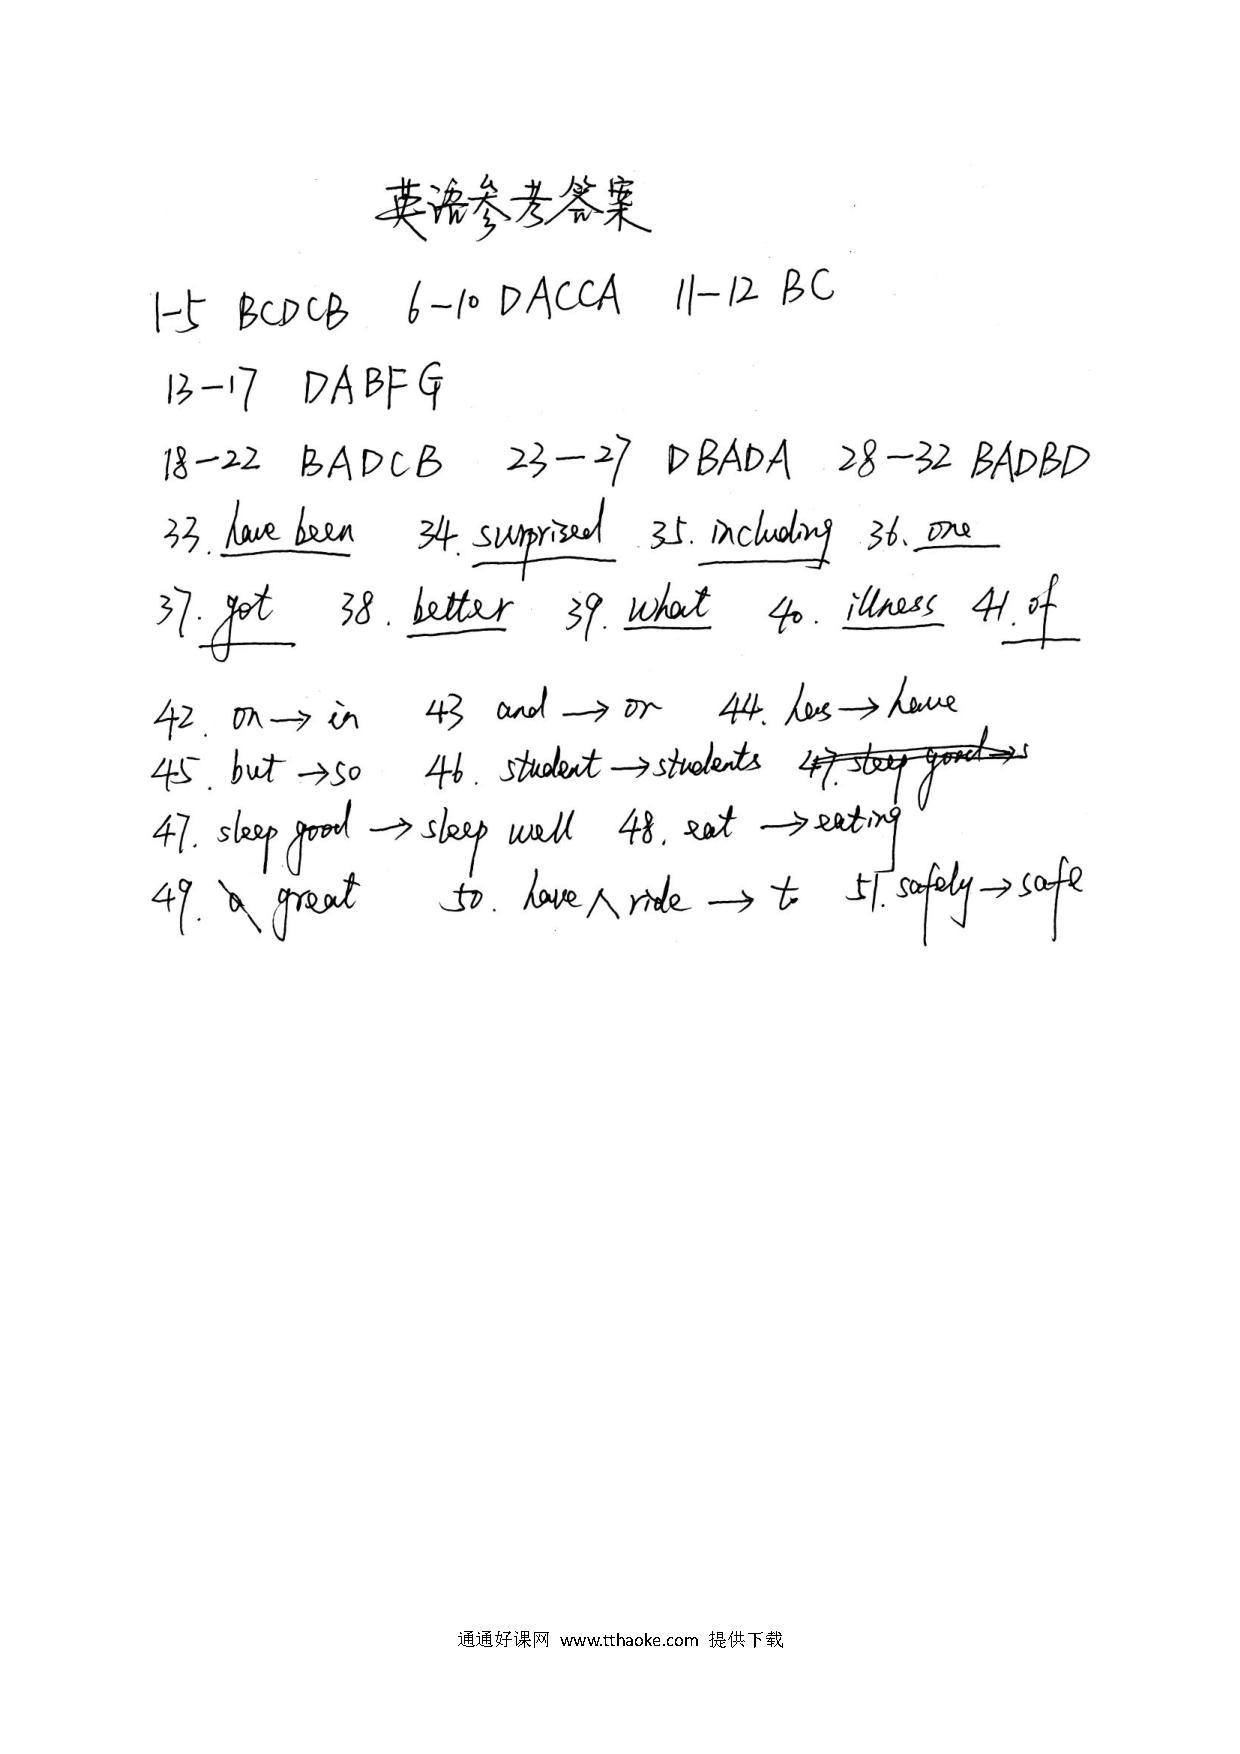 英语参考答案
1-5 BCDCB 6-10 DACCA 11-12 BC
13-17 DABFG
18-22 BADCB 23-27 DBADA 28-32 BADBD
33. have been 34. surprised 35. including 36. one
37. got 38. better 39. what 40. illness 41. of
42. on→in 43 and→or 44. has→have
45. but→so 46. student→students 47. sleep good→s
47. sleep good→sleep well 48. eat→eating
49. a great 50. have∧ride→to 51. safely→safe
通通好课网 www.tthaoke.com 提供下载